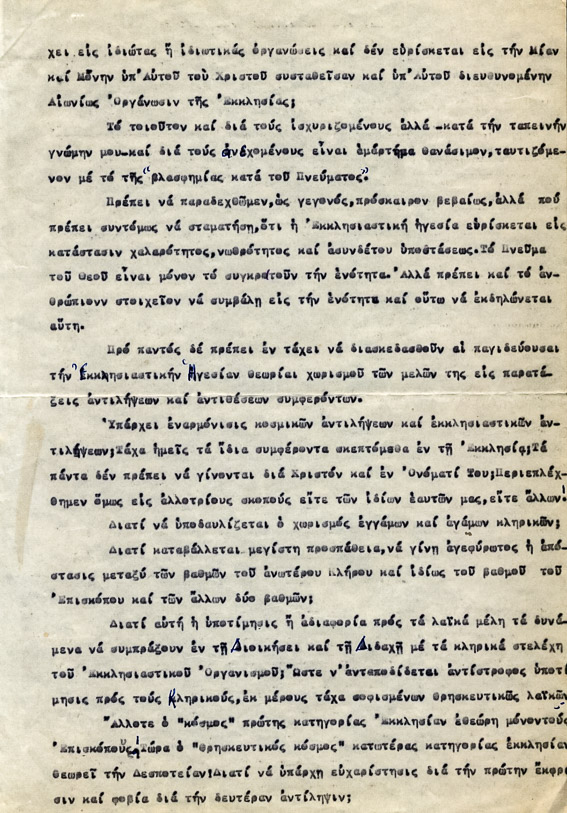 χει είς ίδιώτας ή ίδιωτικάς όργανώσεις καί δέν εύρίσκεται είς τήν Μίαν
καί Μόνην ύπ'Αύτοῦ τοῦ Χριστοῦ συσταθεῖσαν καί ύπ'Αύτοῦ διευθυνομένην
Αἰωνίως 'Οργάνωσιν τῆς 'Εκκλησίας;
Τό τοιοῦτον καί διά τούς ίσχυριζομένους άλλά -κατά τήν ταπεινήν
γνώμην μου-καί διά τούς άνεχομένους εἶναι άμάρτημα θανάσιμον,ταυτιζόμε-
νον μέ τό τῆς "βλασφημίας κατά τοῦ Πνεύματος".
Πρέπει νά παραδεχθῶμεν,ώς γεγονός,πρόσκαιρον βεβαίως,άλλά πού
πρέπει συντόμως νά σταματήση,ὅτι ή 'Εκκλησιαστική ήγεσία εύρίσκεται είς
κατάστασιν χαλαρότητος,νωθρότητος καί άσυνδέτου ύποστάσεως.Τό Πνεῦμα
τοῦ Θεοῦ εἶναι μόνον τό συγκρατοῦν τήν ένότητα.'Αλλά πρέπει καί τό άν-
θρώπινν στοιχεῖον νά συμβάλη είς τήν ένότητα καί οὕτω νά έκδηλώνεται
αὕτη.
Πρό παντός δέ πρέπει έν τάχει νά διασκεδασθοῦν αί παγιδεύουσαι
τήν 'Εκκλησιαστικήν 'Ηγεσίαν θεωρίαι χωρισμοῦ τῶν μελῶν της είς παρατά-
ξεις άντιλήψεων καί άντιθέσεων συμφερόντων.
'Υπάρχει έναρμόνισις κοσμικῶν άντιλήψεων καί έκκλησιαστικῶν άν-
τιλήψεων;Τάχα ήμεῖς τά ἴδια συμφέροντα σκεπτόμεθα έν τῇ 'Εκκλησίᾳ;Τά
πάντα δέν πρέπει νά γίνονται διά Χριστόν καί έν 'Ονόματί Του;Περιεπλέχ-
θημεν ὅμως είς άλλοτρίους σκοπούς εἴτε τῶν ίδίων έαυτῶν μας,εἴτε ἄλλων!
Διατί νά ύποδαυλίζεται ό χωρισμός έγγάμων καί άγάμων κληρικῶν;
Διατί καταβάλλεται μεγίστη προσπάθεια,νά γίνη άγεφύρωτος ή άπό-
στασις μεταξύ τῶν βαθμῶν τοῦ άνωτέρου Κλήρου καί ίδίως τοῦ βαθμοῦ τοῦ
'Επισκόπου καί τῶν ἄλλων δύο βαθμῶν;
Διατί αύτή ή ύποτίμησις ή άδιαφορία πρός τά λαϊκά μέλη τά δυνά-
μενα νά συμπράξουν έν τῇ Διοικήσει καί τῇ Διδαχῇ μέ τά κληρικά στελέχη
τοῦ 'Εκκλησιαστικοῦ 'Οργανισμοῦ;Ὥστε ν'άνταποδίδεται άντίστροφος ύποτί
μησις πρός τούς Κληρικούς,έκ μέρους τάχα σοφισμένων θρησκευτικῶς λαϊκῶν
Ἄλλοτε ό "κόσμος" πρώτης κατηγορίας 'Εκκλησίαν έθεώρη μόνοντούς
'Επισκόπους!Τώρα ό "θρησκευτικός κόσμος" κατωτέρας κατηγορίας έκκλησίαν
θεωρεῖ τήν Δεσποτείαν!Διατί νά ύπάρχη εύχαρίστησις διά τήν πρώτην ἔκφρα
σιν καί φοβία διά τήν δευτέραν άντίληψιν;